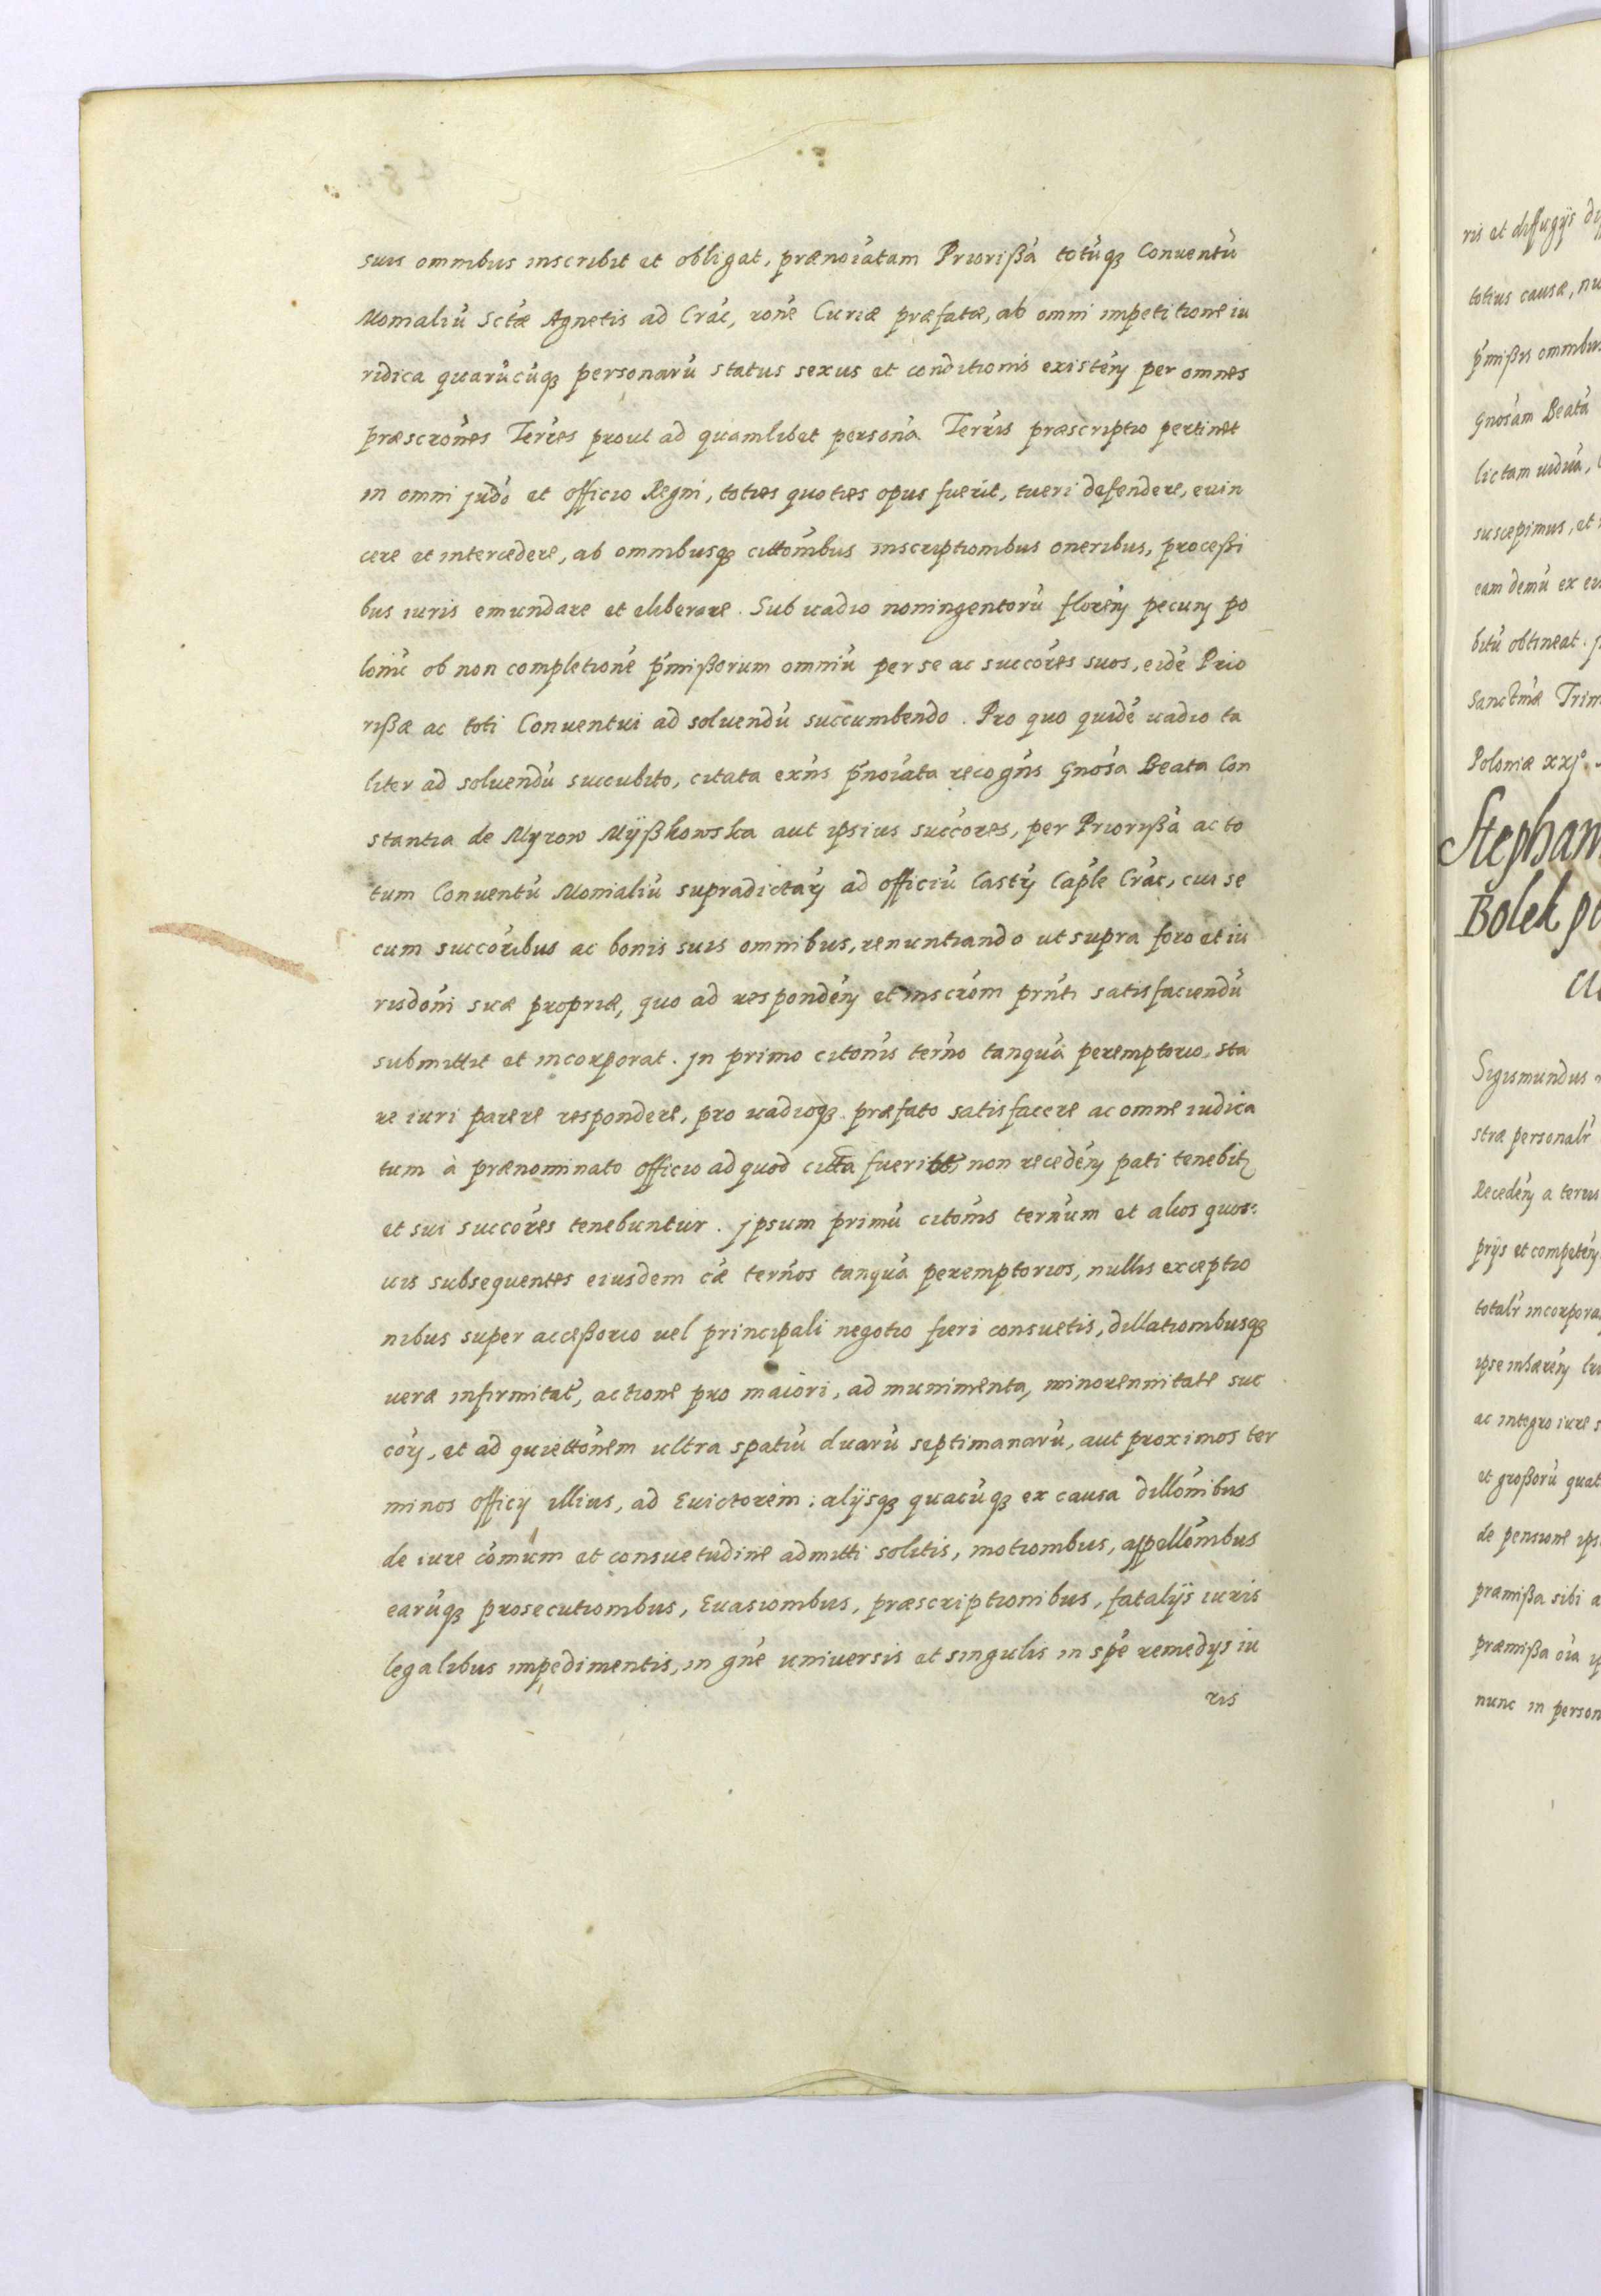 suis omnibus inscribit et obligat, prænoĩatam Priorißã totũqꝫ Conuentũ
Monialiũ Sctæ Agnetis ad Crac, rõne Curiæ præfatæ, ab omni impetitione iu
ridica quarũcũqꝫ personarũ status sexus et conditionis existeñ per omnes
præscrõnes Terres prout ad quamlibet personã Terris præscriptio pertinet
in omni judõ et officio Regni, toties quoties opus fuerit, tueri defendere, euin
cere et intercedere, ab omnibusqꝫ cittõnibus inscriptionibus oneribus, proceßi
bus iuris emundare et eliberare. Sub uadio noningentorũ floreñ pecuñ po
lonic ob non completionẽ p̃mißorum omniũ per se ac succõres suos, eidẽ Prio
rißæ ac toti Conuentui ad soluendũ succumbendo. Pro quo quidẽ uadio ta
liter ad soluendũ succubito, citata exñs p̃noĩata recogñs Gnosa Beata Con
stantia de Myrow Mÿßkowska aut ipsius succõres, per Priorißã ac to
tum Conuentũ Monialiũ supradictaꝝ ad officiũ Castꝝ Caple Crac, cui se
cum succõribus ac bonis suis omnibus, renuntiando ut supra foro et iu
risdoñi suæ propriæ, quo ad respondeñ et inscrõm prñti satisfaciendũ
submittit et incorporat. Jn primo citoñis terño tanquã peremptorio, sta
re iuri parere respondere, pro uadioqꝫ præfato satisfacere ac omne iudica
tum à prænominato officio ad quod citta fuerit non recedeñ pati tenebitꝫ
et sui succõres tenebuntur. Jpsum primũ citoñis terñum et alios quos-
uis subsequentes eiusdem cæ terños tanquã peremptorios, nullis exceptio
nibus super acceßorio uel principali negotio fieri consuetis, dillationibusqꝫ
ueræ infirmitat, actione pro maiori, ad munimenta, minorennitate suc
coꝝ, et ad quiettõnem ultra spatiũ duarũ septimanarũ, aut proximos ter
minos officij illius, ad Euictorem: alijsqꝫ quacũqꝫ ex causa dillõnibus
de iure cõmum et consuetudine admitti solitis, motionibus, appellõnibus
earũqꝫ prosecutionibus, Euasionibus, præscriptionibus, fatalijs iuris
legalibus impedimentis, in gñe uniuersis et singulis in spẽ remedys iu
ris
ris et diffugijs
totius causæ,
p̃mißis omnibus
Gnosam Beatã
lictam uiduã,
suscepimus, et
eam demũ ex
bitũ obtineat.
Sanctmæ
Poloniæ xxjº
Stephan
Bolek
Sigismundus
stræ personalr
Recedeñ a terris
prijs et competeñ
totalr incorpora
ipse inhæreñ
ac integro iure
et großorũ quat
de pensione
præmißa sibi
præmißa oĩa
nunc in person